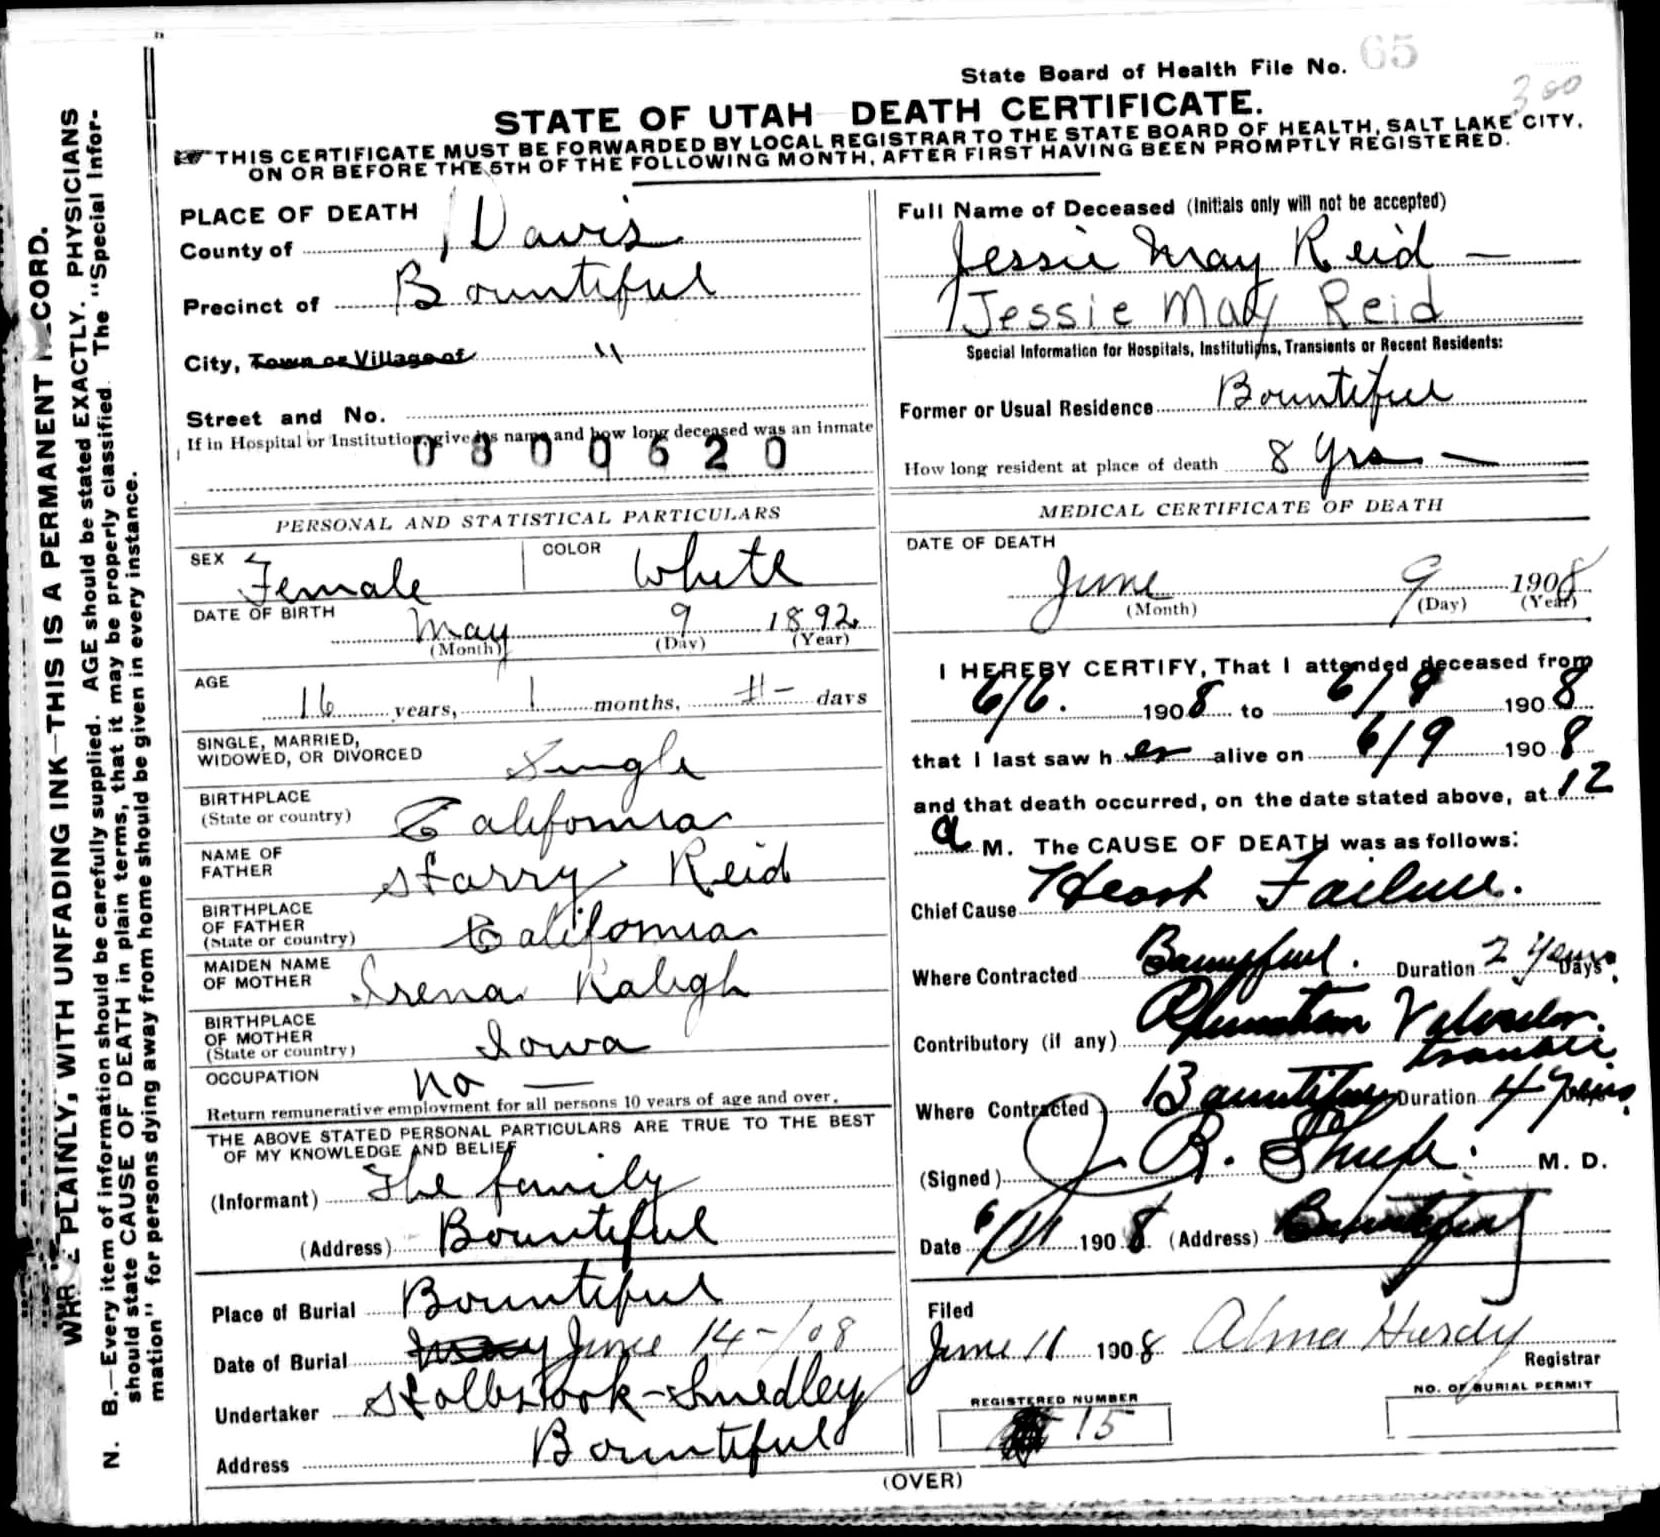 State Board of Health File No. 65
300
STATE OF UTAH DEATH CERTIFICATE.
THIS CERTIFICATE MUST BE FORWARDED BY LOCAL REGISTRAR TO THE STATE BOARD OF HEALTH, SALT LAKE CITY,
ON OR BEFORE THE 5TH OF THE FOLLOWING MONTH, AFTER FIRST HAVING BEEN PROMPTLY REGISTERED.
WRITE PLAINLY, WITH UNFADING INK—THIS IS A PERMANENT RECORD.
N. B.—Every item of information should be carefully supplied. AGE should be stated EXACTLY. PHYSICIANS
should state CAUSE OF DEATH in plain terms, that it may be properly classified. The "Special Infor-
mation" for persons dying away from home should be given in every instance.
PLACE OF DEATH
County of Davis
Precinct of Bountiful
City, Town or Village of "
Street and No.
If in Hospital or Institution, give its name and how long deceased was an inmate
0800620
PERSONAL AND STATISTICAL PARTICULARS
SEX Female COLOR White
DATE OF BIRTH
May 9 1892
(Month) (Day) (Year)
AGE
16 years, 1 months, days
SINGLE, MARRIED,
WIDOWED, OR DIVORCED Single
BIRTHPLACE
(State or country) California
NAME OF
FATHER Harry Reid
BIRTHPLACE
OF FATHER
(State or country) California
MAIDEN NAME
OF MOTHER Irena Raligh
BIRTHPLACE
OF MOTHER
(State or country) Iowa
OCCUPATION no —
Return remunerative employment for all persons 10 years of age and over.
THE ABOVE STATED PERSONAL PARTICULARS ARE TRUE TO THE BEST
OF MY KNOWLEDGE AND BELIEF
(Informant) The family
(Address) Bountiful
Place of Burial Bountiful
Date of Burial June 14-/08
Undertaker Holbrook-Smedley
Address Bountiful
Full Name of Deceased (Initials only will not be accepted)
Jessie May Reid —
Jessie May Reid
Special Information for Hospitals, Institutions, Transients or Recent Residents:
Former or Usual Residence Bountiful
How long resident at place of death 8 yrs —
MEDICAL CERTIFICATE OF DEATH
DATE OF DEATH
June 9 1908
(Month) (Day) (Year)
I HEREBY CERTIFY, That I attended deceased from
6/6. 1908 to 6/9 1908
that I last saw her alive on 6/9 1908
and that death occurred, on the date stated above, at 12
a M. The CAUSE OF DEATH was as follows:
Chief Cause Heart Failure.
Where Contracted Bountiful. Duration 2 years. Days
Contributory (if any) Valvular
trouble
Where Contracted Bountiful Duration 4 years. Days
(Signed) J. R. M. D.
Date 6/11 1908 (Address) Bountiful
Filed
June 11 1908 Alma Hardy
Registrar
REGISTERED NUMBER
15
NO. OF BURIAL PERMIT
(OVER)